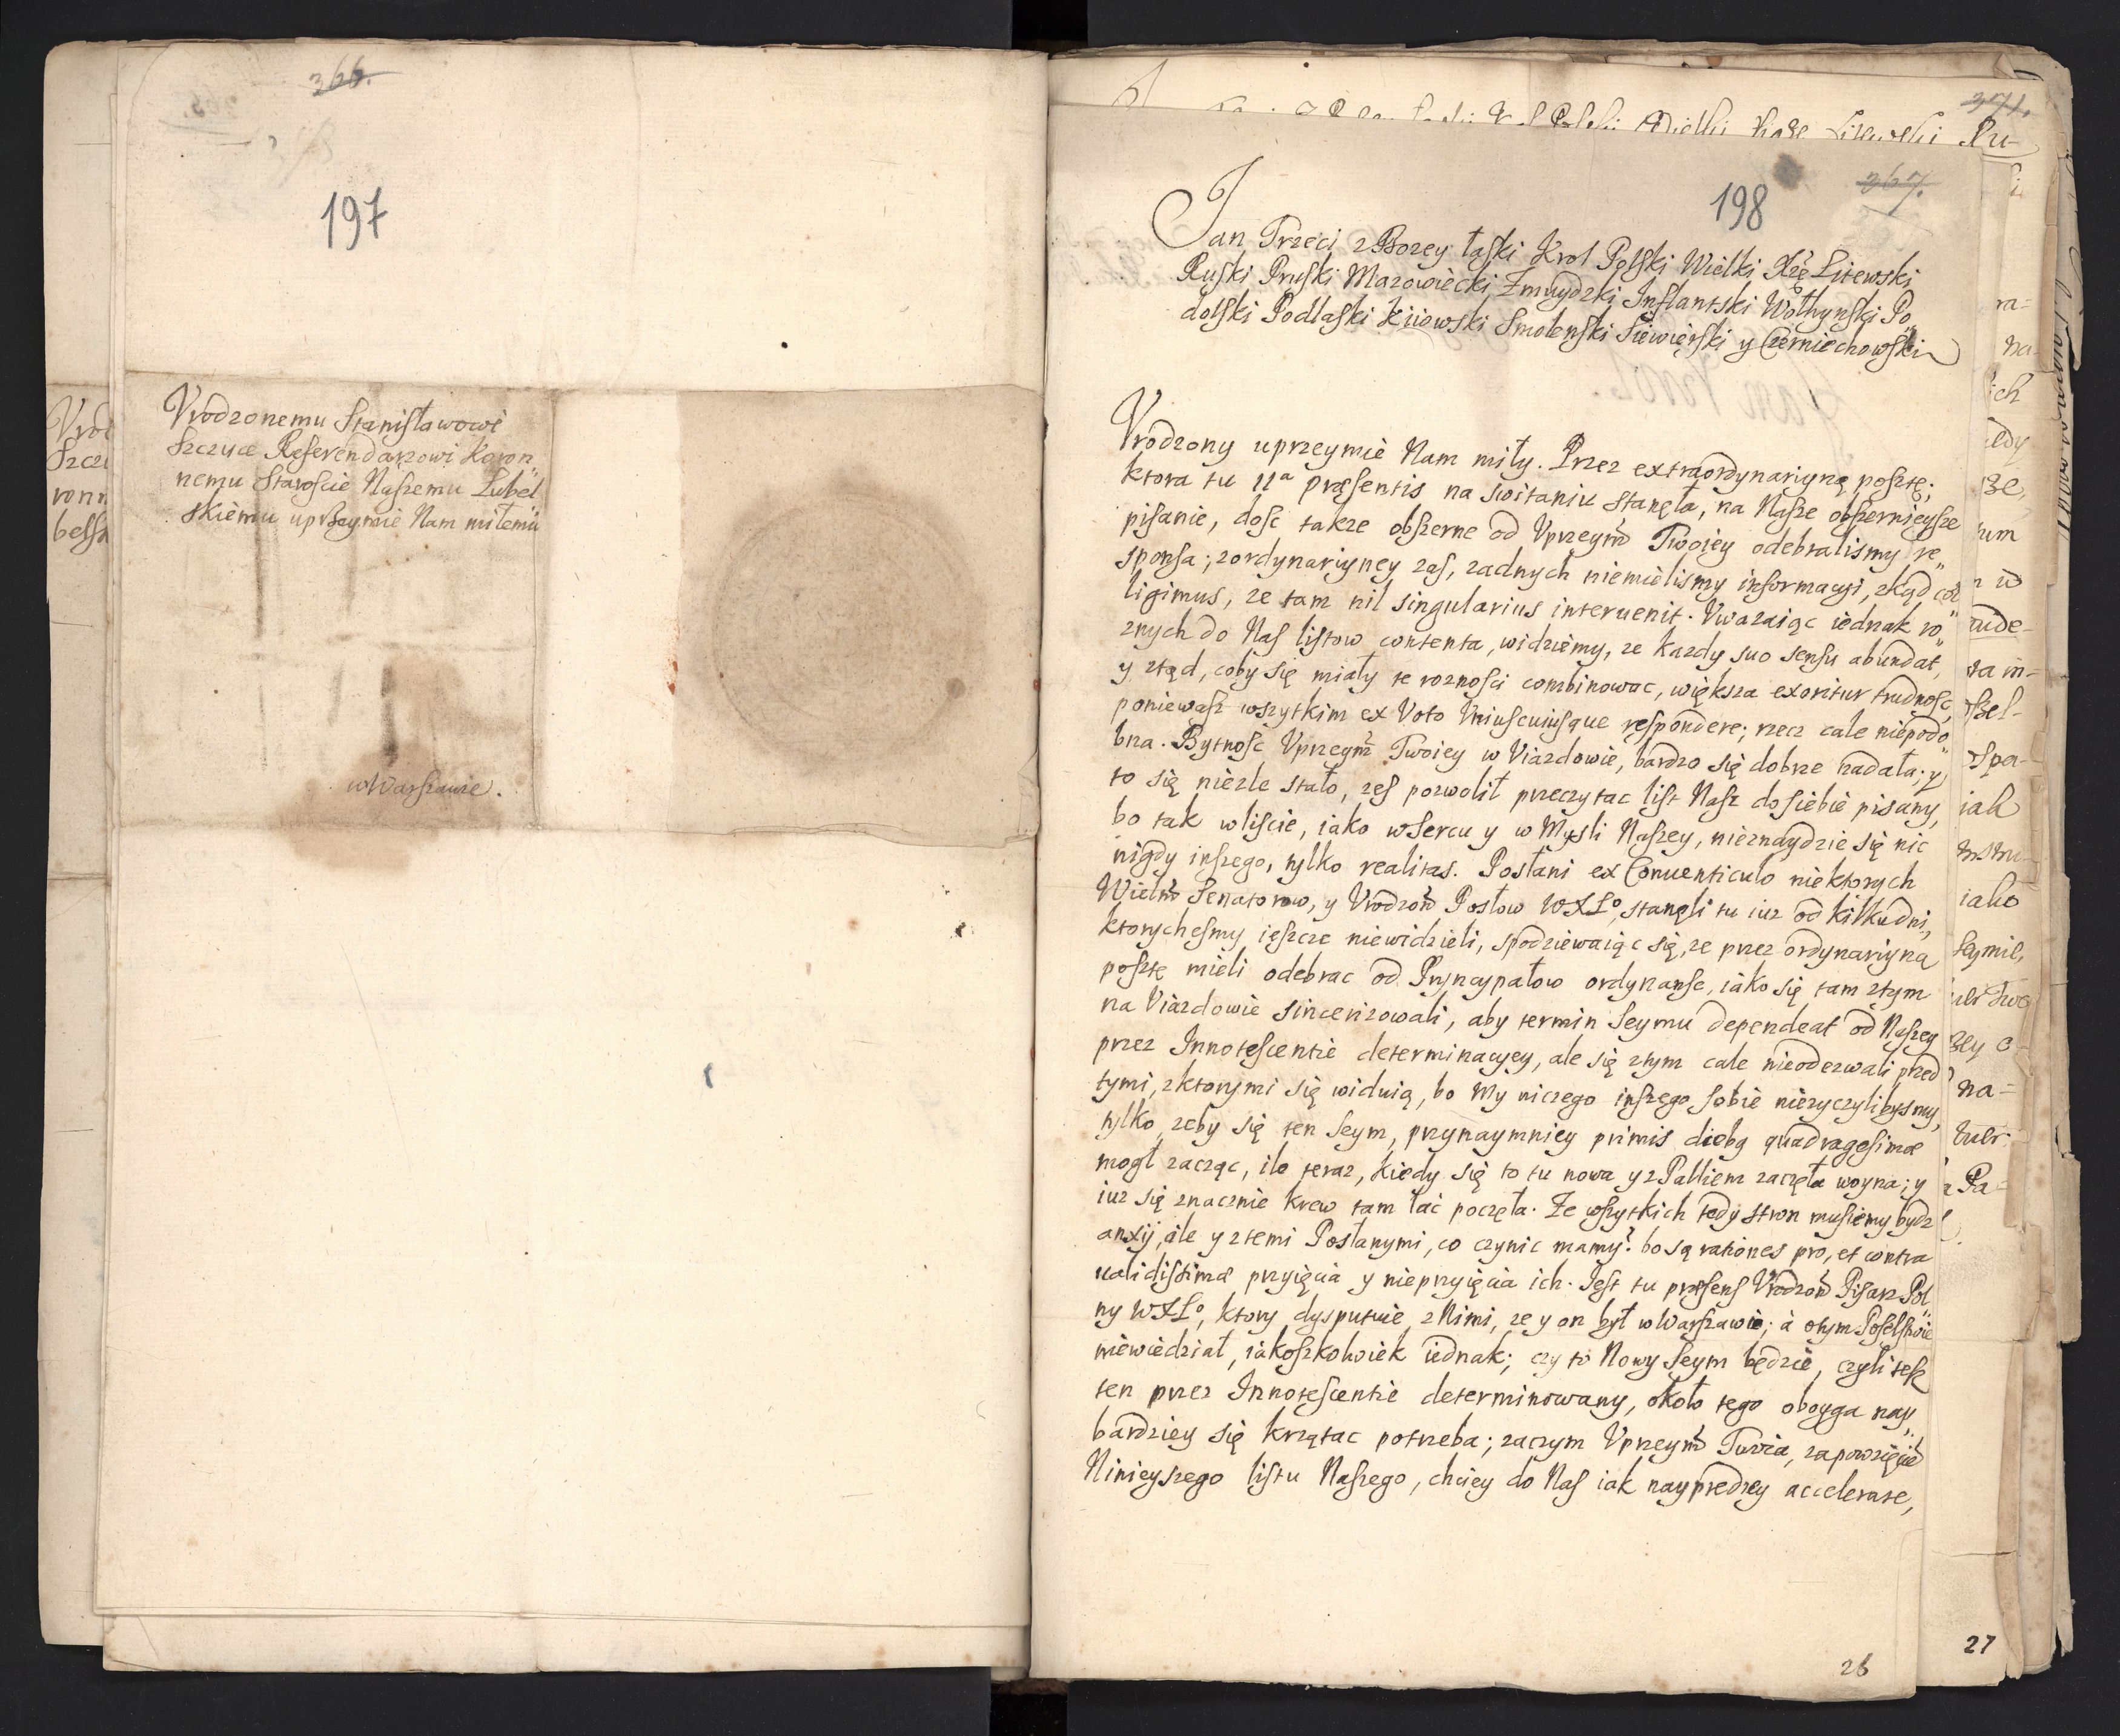 366.
197
Vrodzonemu Stanisławowi
Szczuce Referendarzowi Koron„
nemu Staroscie Naszemu Lubel„
skiemu uprzeymie Nam miłemu
w Warszawie.
371.
367.
198
Jan Trzeci z Bozey łaski Krol Polski Wielki Xżę Litewski
Ruski Pruski Mazowiecki Zmuydzki Inflantski Wołhynski Po„
dolski Podlaski Kiiowski Smolenski Siewierski y Czerniechowski
Vrodzony uprzeymie Nam miły. Przez extraordynaryiną posztę;
ktora tu 11ª præsentis na switaniu stanęła, na Nasze obszernieysze
pisanie, dosc takze obszerne od Vprzeym̃ Twoiey odebralismy re„
sponsa; z ordynaryiney zas, zadnych niemielismy informacyi, zkąd col„
ligimus, ze tam nil singularius interuenit. Vwazaiąc iednak ro„
znych do Nas listow contenta, widziemy, ze kazdy suo sensu abundat,
y ztąd, coby się miały te roznosci combinowac, większa exoritur trudnosc,
poniewasz wszytkim ex Voto Vniuscuiusque respondere; rzecz cale niepodo„
bna. Bytnosc Vprzeym̃ Twoiey w Viazdowie, bardzo się dobrze nadała; y
to się niezle stało, zes pozwolił przeczytac list Nasz do siebie pisany,
bo tak w liscie, iako w sercu y w Mysli Naszey, nieznaydzie się nic
nigdy inszego, tylko realitas. Posłani ex Conuenticulo niektorych
Wielm̃ Senatorow, y Vrodzoñ Posłow WXLº, stanęli tu iuz od kilku dni,
ktorychesmy ieszcze niewidzieli, spodziewaiąc się, ze przez ordynaryiną
posztę mieli odebrac od Pryncypałow ordynanse, iako się tam ztym
na Viazdowie sincerizowali, aby termin Seymu dependeat od Naszey
przez Innotescentie determinacyey, ale się ztym cale nieodezwali przed
tymi, z ktorymi się widuią, bo my niczego inszego sobie niezyczylibysmy,
tylko, zeby się ten Seym, przynaymniey primis dieb9 quadragesimæ
mogł zacząc, ile teraz, kiedy się to tu nowa y z Palliem zaczęła woyna; y
iuz się znacznie krew tam lac poczęła. Ze wszytkich tedy stron musiemy bydz
anxij, ale y z temi Posłanymi, co czynic mamy? bo są rationes pro, et contra
ualidissimæ przyięcia y nieprzyięcia ich. Jest tu præsens Vrodzoñ Pisarz Pol„
ny WXLº, ktory dysputuie z Nimi, ze y on był w Warszawie; à o tym Poselstwie
niewiedział, iakoszkolwiek iednak; czy to Nowy Seym będzie, czyli tesz
ten przez Innotescentie determinowany, około tego oboyga nay„
bardziey się krzątac potrzeba; zaczym Vprzeym̃ Twoia, za powzięciem
Ninieyszego listu Naszego, chciey do Nas iak nayprędzey accelerare,
26
27